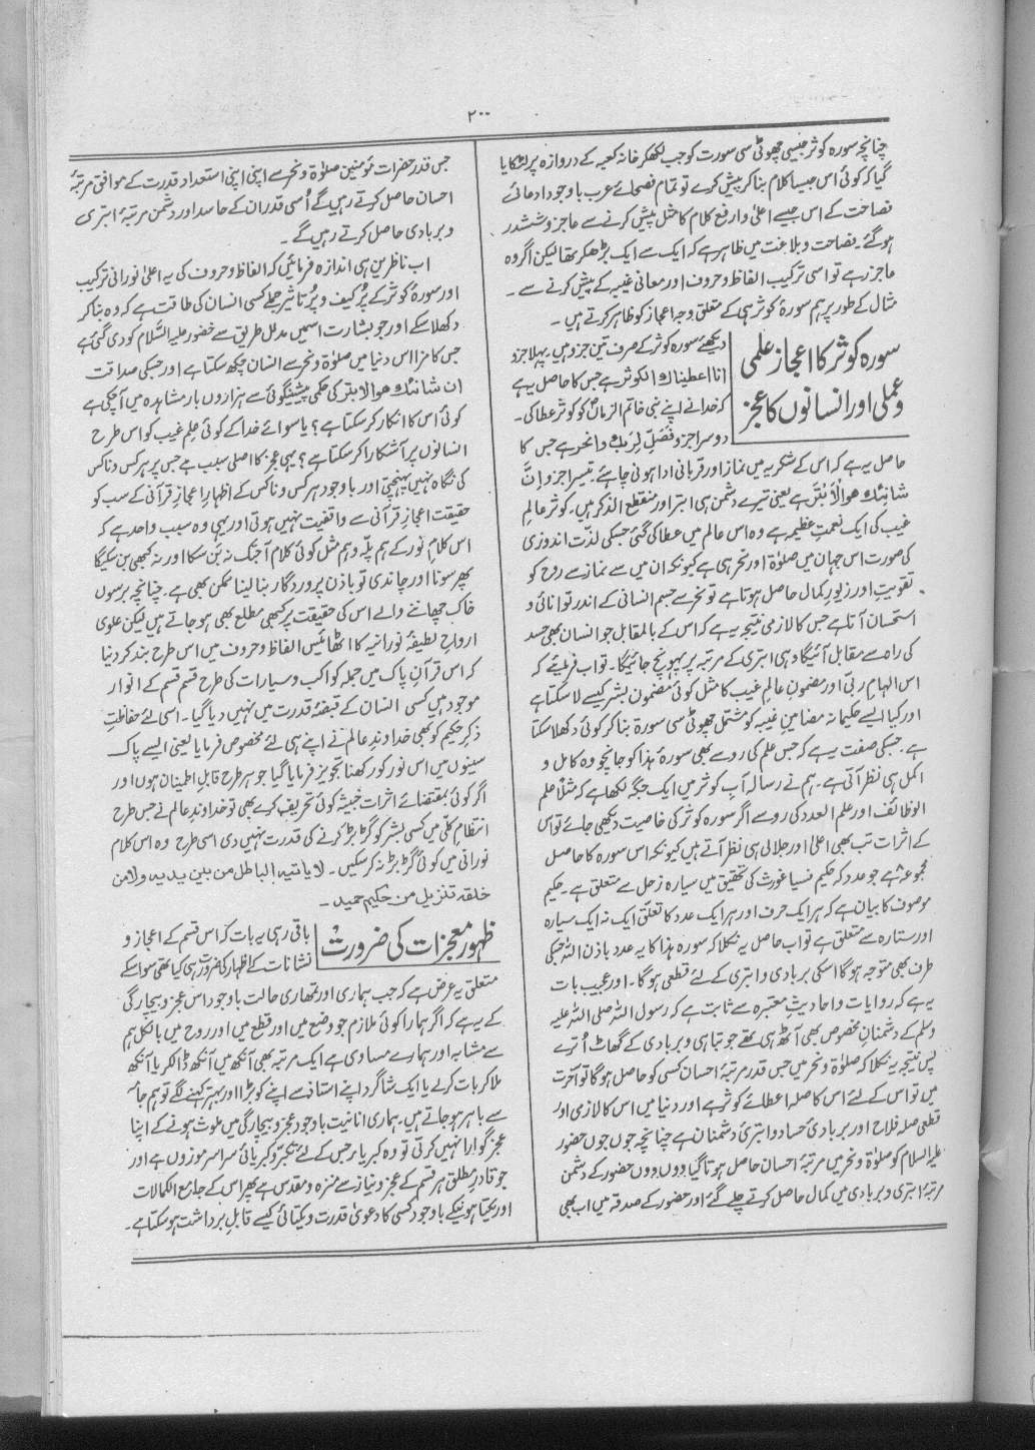 ۲۰۰
چنانچہ سورہ کوثر جیسی چھوٹی سی سورت کو جب لکھکر خانہ کعبہ کے دروازہ پر لٹکایا
گیا کہ کوئی اس جیسا کلام بنا کر پیش کرے تو تمام فصحائے عرب باوجود ادعائے
فصاحت کے اس جیسے اعلیٰ وارفع کلام کا مثل پیش کرنے سے عاجز و ششدر
ہوگئے۔ فصاحت و بلاغت میں ظاہر ہے کہ ایک سے ایک بڑھکر تھا لیکن اگر وہ
عاجز رہے تو اسی ترکیب الفاظ و حروف اور معانی غیبیہ کے پیش کرنے سے۔
مثال کے طور پر ہم سورۂ کوثر ہی کے متعلق وجہ اعجاز کو ظاہر کرتے ہیں۔
سورہ کوثر کا اعجاز علمی
وعملی اور انسانوں کا عجز
دیکھئے سورہ کوثر کے صرف تین جزو ہیں۔ پہلا جزو
انا اعطیناك الکوثر ہے جس کا حاصل یہ ہے
کہ خدا نے اپنے نبی خاتم الزماں کو کوثر عطا کی۔
دوسرا جزو فَصَلِّ لِرَبِّكَ وانحر ہے جس کا
حاصل یہ ہے کہ اس کے شکریہ میں نماز اور قربانی ادا ہونی چاہئے۔ تیسرا جزو اِنَّ
شانئك ھوالْاَبْتَر ہے یعنی تیرے دشمن ہی ابتر اور منقطع الذکر ہیں۔ کوثر عالمِ
غیب کی ایک نعمتِ عظیمہ ہے وہ اس عالم میں عطا کی گئی جسکی لذّت اندوزی
کی صورت اس جہان میں صلوٰۃ اور نحر ہی ہے کیونکہ ان میں سے نماز سے روح کو
تقویت اور زیورِ کمال حاصل ہوتا ہے تو نحر سے جسم انسانی کے اندر توانائی و
استحسان آتا ہے جس کا لازمی نتیجہ یہ ہے کہ اس کے بالمقابل جو انسان بھی حسد
کی راہ سے مقابل آئیگا وہی ابتری کے مرتبہ پر پہونچ جائیگا۔ تو اب فرمائیے کہ
اس الہامِ ربّی اور مضمون عالمِ غیب کا مثل کوئی مضمون بشر کیسے لا سکتا ہے
اور کیا ایسے حکیمانہ مضامینِ غیبیہ کو مشتمل چھوٹی سی سورۃ بنا کر کوئی دکھلا سکتا
ہے۔ جسکی صفت یہ ہے کہ جس علم کی رو سے بھی سورہ ہذا کو جانچو وہ کامل و
اکمل ہی نظر آتی ہے۔ ہم نے رسالہ آبِ کوثر میں ایک جگہ لکھا ہے کہ مثلاً علم
الوظائف اور علم العدد کی رو سے اگر سورہ کوثر کی خاصیت دیکھی جائے تو اُس
کے اثرات تب بھی اعلیٰ اور جلالی ہی نظر آتے ہیں کیونکہ اس سورہ کا حاصل
مجموعہ ۸ ہے جو عدد کہ حکیم فیساغورث کی تحقیق میں سیارہ زحل سے متعلق ہے۔ حکیم
موصوف کا بیان ہے کہ ہر ایک حرف اور ہر ایک عدد کا تعلق ایک نہ ایک سیارہ
اور ستارہ سے متعلق ہے تو اب حاصل یہ نکلا کہ سورہ ہذا کا یہ عدد باذن اللہ جسکی
طرف بھی متوجہ ہوگا اسکی بربادی و ابتری کے لئے قطعی ہوگا۔ اور عجیب بات
یہ ہے کہ روایات و احادیثِ معتبرہ سے ثابت ہے کہ رسول اللہ صلی اللہ علیہ
وسلم کے دشمنانِ مخصوص بھی آٹھ ہی تھے جو تباہی و بربادی کے گھاٹ اُترے
پس نتیجہ یہ نکلا کہ صلوٰۃ و نحر میں جس قدر مرتبۂ احسان کسی کو حاصل ہوگا تو آخرت
میں تو اس کے لئے اس کا صلہ اعطائے کوثر ہے اور دنیا میں اس کا لازمی اور
قطعی صلہ فلاح اور بربادیٔ حساد و ابتریٔ دشمنان ہے چنانچہ جوں جوں حضور
علیہ السلام کو صلوٰۃ و نحر میں مرتبۂ احسان حاصل ہوتا گیا ووں ووں حضور کے دشمن
مرتبۂ ابتری و بربادی میں کمال حاصل کرتے چلے گئے اور حضور کے صدقہ میں اب بھی
جس قدر حضرات مؤمنین صلوٰۃ و نحر سے اپنی اپنی استعداد قدرت کے موافق مرتبۂ
احسان حاصل کرتے رہیں گے اُسی قدر ان کے حاسد اور دشمن مرتبۂ ابتری
و بربادی حاصل کرتے رہیں گے۔
اب ناظرین ہی اندازہ فرمائیں کہ الفاظ و حروف کی یہ اعلیٰ نورانی ترکیب
اور سورۂ کوثر کے پُر کیف و پُر تاثیر جملے کسی انسان کی طاقت ہے کہ وہ بنا کر
دکھلا سکے اور جو بشارت اسمیں مدلل طریق سے حضور علیہ السَّلام کو دی گئی ہے
جس کا مزا اس دنیا میں صلوٰۃ و نحر سے انسان چکھ سکتا ہے اور جسکی صداقت
ان شانئك ھوالابتر کی حکمی پیشینگوئی سے ہزاروں بار مشاہدہ میں آچکی ہے
کوئی اس کا انکار کر سکتا ہے؟ یا سوائے خدا کے کوئی علم غیب کو اس طرح
انسانوں پر آشکارا کر سکتا ہے؟ یہی عجز کا اصلی سبب ہے جس پر ہر کس و ناکس
کی نگاہ نہیں پہنچتی اور باوجود ہر کس و ناکس کے اظہارِ اعجازِ قرآنی کے سب کو
حقیقت اعجازِ قرآنی سے واقفیت نہیں ہوتی اور یہی وہ سبب واحد ہے کہ
اس کلامِ نور کے ہم پلّہ و ہم مثل کوئی کلام آجتک نہ بَن سکا اور نہ کبھی بن سکیگا
پھر سونا اور چاندی تو باذن پروردگار بنا لینا ممکن بھی ہے۔ چنانچہ برسوں
خاک چھاننے والے اس کی حقیقت پر کبھی مطلع بھی ہو جاتے ہیں لیکن علوی
ارواح لطیفۂ نورانیہ کا اٹھائیس الفاظ و حروف میں اس طرح بند کر دینا
کہ اس قرآنِ پاک میں جملہ کواکب و سیارات کی طرح قسم قسم کے انوار
موجود ہیں کسی انسان کے قبضۂ قدرت میں نہیں دیا گیا۔ اسی لئے حفاظتِ
ذکرِ حکیم کو بھی خداوندِ عالم نے اپنے ہی لئے مخصوص فرمایا یعنی ایسے پاک
سینوں میں اس نور کو رکھنا تجویز فرمایا گیا جو ہر طرح قابلِ اطمینان ہوں اور
اگر کوئی بمقتضائے اثرات خبیثہ کوئی تحریف کرے بھی تو خداوند عالم نے جس طرح
انتظامِ کُلّی میں کسی بشر کو گڑبڑ کرنے کی قدرت نہیں دی اسی طرح وہ اس کلام
نورانی میں کوئی گڑبڑ نہ کر سکیں۔ لایاتیہ الباطل من بین یدیہ ولا من
خلفہ تنزیل من حکیم حمید۔
ظہورِ معجزات کی ضرورت
باقی رہی یہ بات کہ اس قسم کے اعجاز و
نشانات کے اظہار کی ضرورت ہی کیا تھی سو اسکے
متعلق یہ عرض ہے کہ جب ہماری اور تمھاری حالت باوجود اس عجز و بیچارگی
کے یہ ہے کہ اگر ہمارا کوئی ملازم جو وضع میں اور قطع میں اور روح میں بالکل ہم
سے مشابہ اور ہمارے مساوی ہے ایک مرتبہ بھی آنکھ میں آنکھ ڈالکر یا آنکھ
ملا کر بات کرلے یا ایک شاگرد اپنے استاذ سے اپنے کو بڑا اور بہتر کہنے لگے تو ہم جامہ
سے باہر ہو جاتے ہیں۔ ہماری انانیت باوجود عجز و بیچارگی میں ملوث ہونے کے اپنا
عجز گوارا نہیں کرتی تو وہ کبریا جس کے لئے تکبّر و کبریائی سراسر موزوں ہے اور
جو قادرِ مطلق ہر قسم کے عجز و نیاز سے منزہ و مقدس ہے پھر اس کے جامع الکمالات
اور یکتا ہونیکے باوجود کسی کا دعویٰ قدرت و یکتائی کیسے قابل برداشت ہو سکتا ہے۔